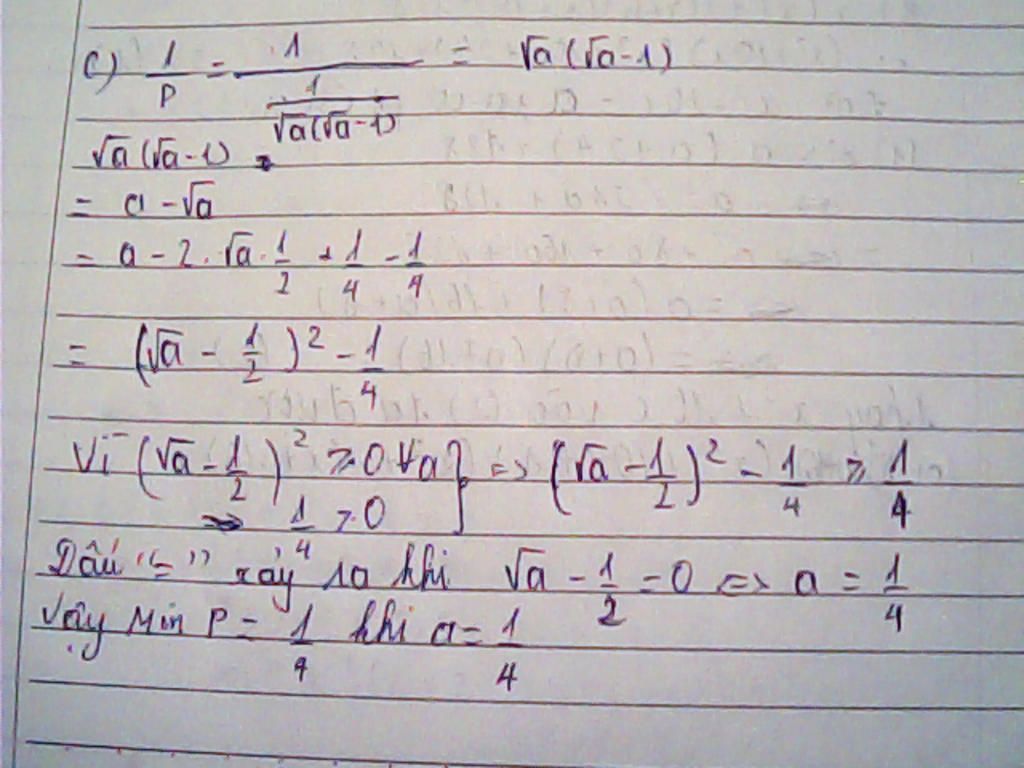 c) 1/P = 1/(1/(√a(√a-1))) = √a(√a-1)
√a(√a-1)
= a - √a
= a - 2.√a.1/2 + 1/4 - 1/4
= (√a - 1/2)² - 1/4
Vì (√a - 1/2)² ≥ 0 ∀a } => (√a - 1/2)² - 1/4 ≥ 1/4
=> 1/4 > 0
Dấu "=" xảy ra khi √a - 1/2 = 0 <=> a = 1/4
Vậy Min P = 1/4 khi a = 1/4